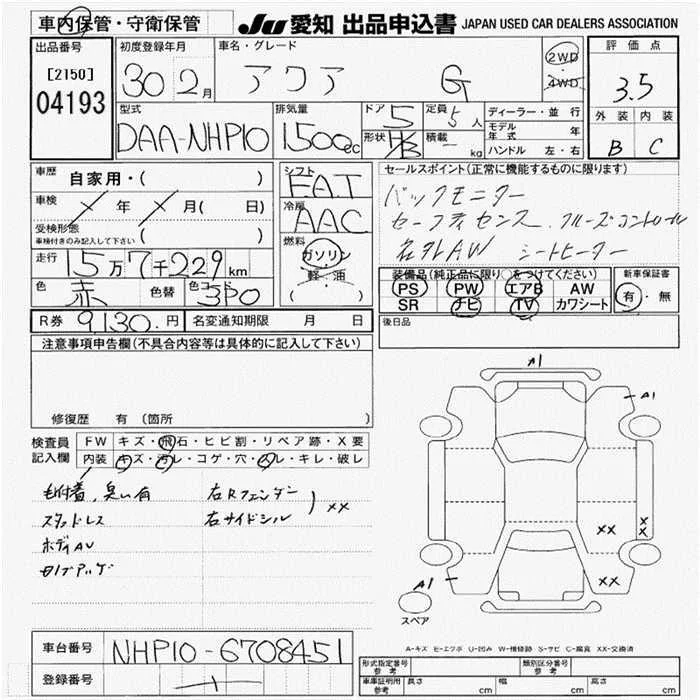 車内保管・守衛保管
JU 愛知 出品申込書 JAPAN USED CAR DEALERS ASSOCIATION
出品番号
[2150]
04193
初度登録年月
30 2月
車名・グレード
アクア G
2WD
・
4WD
評価点
3.5
外装 内装
B C
型式
DAA-NHP10
排気量
1500cc
ドア 5
形状 H/B
定員 5人
積載 - kg
ディーラー・並行
モデル年式 年
ハンドル 左・右
車歴 自家用・( )
車検 × 年 × 月( 日)
受検形態 ( )
車検付きのみ記入して下さい
走行 15万7千229km
色 赤 色替 色コード 3P0
シフト
FAT
冷房
AAC
燃料
ガソリン
軽・油
( )
セールスポイント(正常に機能するものに限ります)
バックモニター
セーフティセンス、クルーズコントロール
名外AW シートヒーター
装備品(純正品に限り○をつけてください)
PS PW エアB AW
SR ナビ TV カワシート
新車保証書
有・無
R券 9,130.円 名変通知期限 月 日
後日品
注意事項申告欄(不具合内容等は具体的に記入して下さい)
修復歴 有 (箇所 )
検査員記入欄
FW キズ・飛石・ヒビ割・リペア跡・X要
内装 キズ・汚レ・コゲ・穴・ハレ・キレ・破レ
毛付着、臭い有
スタッドレス
ボディAU
右Rフェンダー
右サイドシル ) XX
A1
A1
XX
XX
XX
A1
スペア
A-キズ E-エクボ U-凹み W-補修跡 S-サビ C-腐食 XX-交換済
車台番号 NHP10-6708451
登録番号
形式指定番号 参考
類別区分番号 参考
車庫証明用 参考 長さ cm 幅 cm 高さ cm